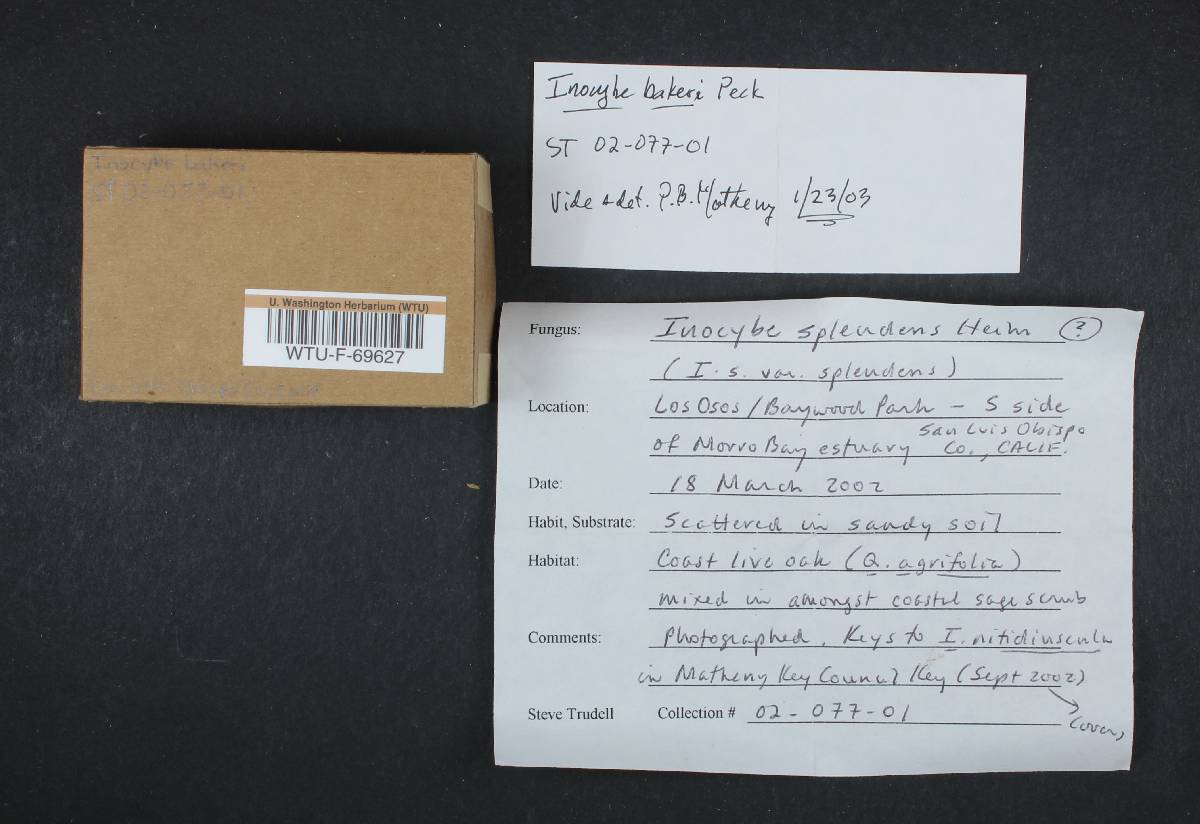 Inocybe bakeri Peck
ST 02-077-01
Vide & det. P.B. Matheny 1/23/03
Inocybe bakeri
ST 02-077-01
U. Washington Herbarium (WTU)
WTU-F-69627
Fungus: Inocybe splendens Heim (?)
(I. s. var. splendens)
Location: Los Osos/Baywood Park - S side
of Morro Bay estuary San Luis Obispo
Co., CALIF.
Date: 18 March 2002
Habit, Substrate: Scattered in sandy soil
Habitat: Coast live oak (Q. agrifolia)
mixed in amongst coastal sage scrub
Comments: Photographed. Keys to I. nitidiuscula
in Matheny Key Council Key (Sept 2002)
(over)
Steve Trudell Collection # 02-077-01